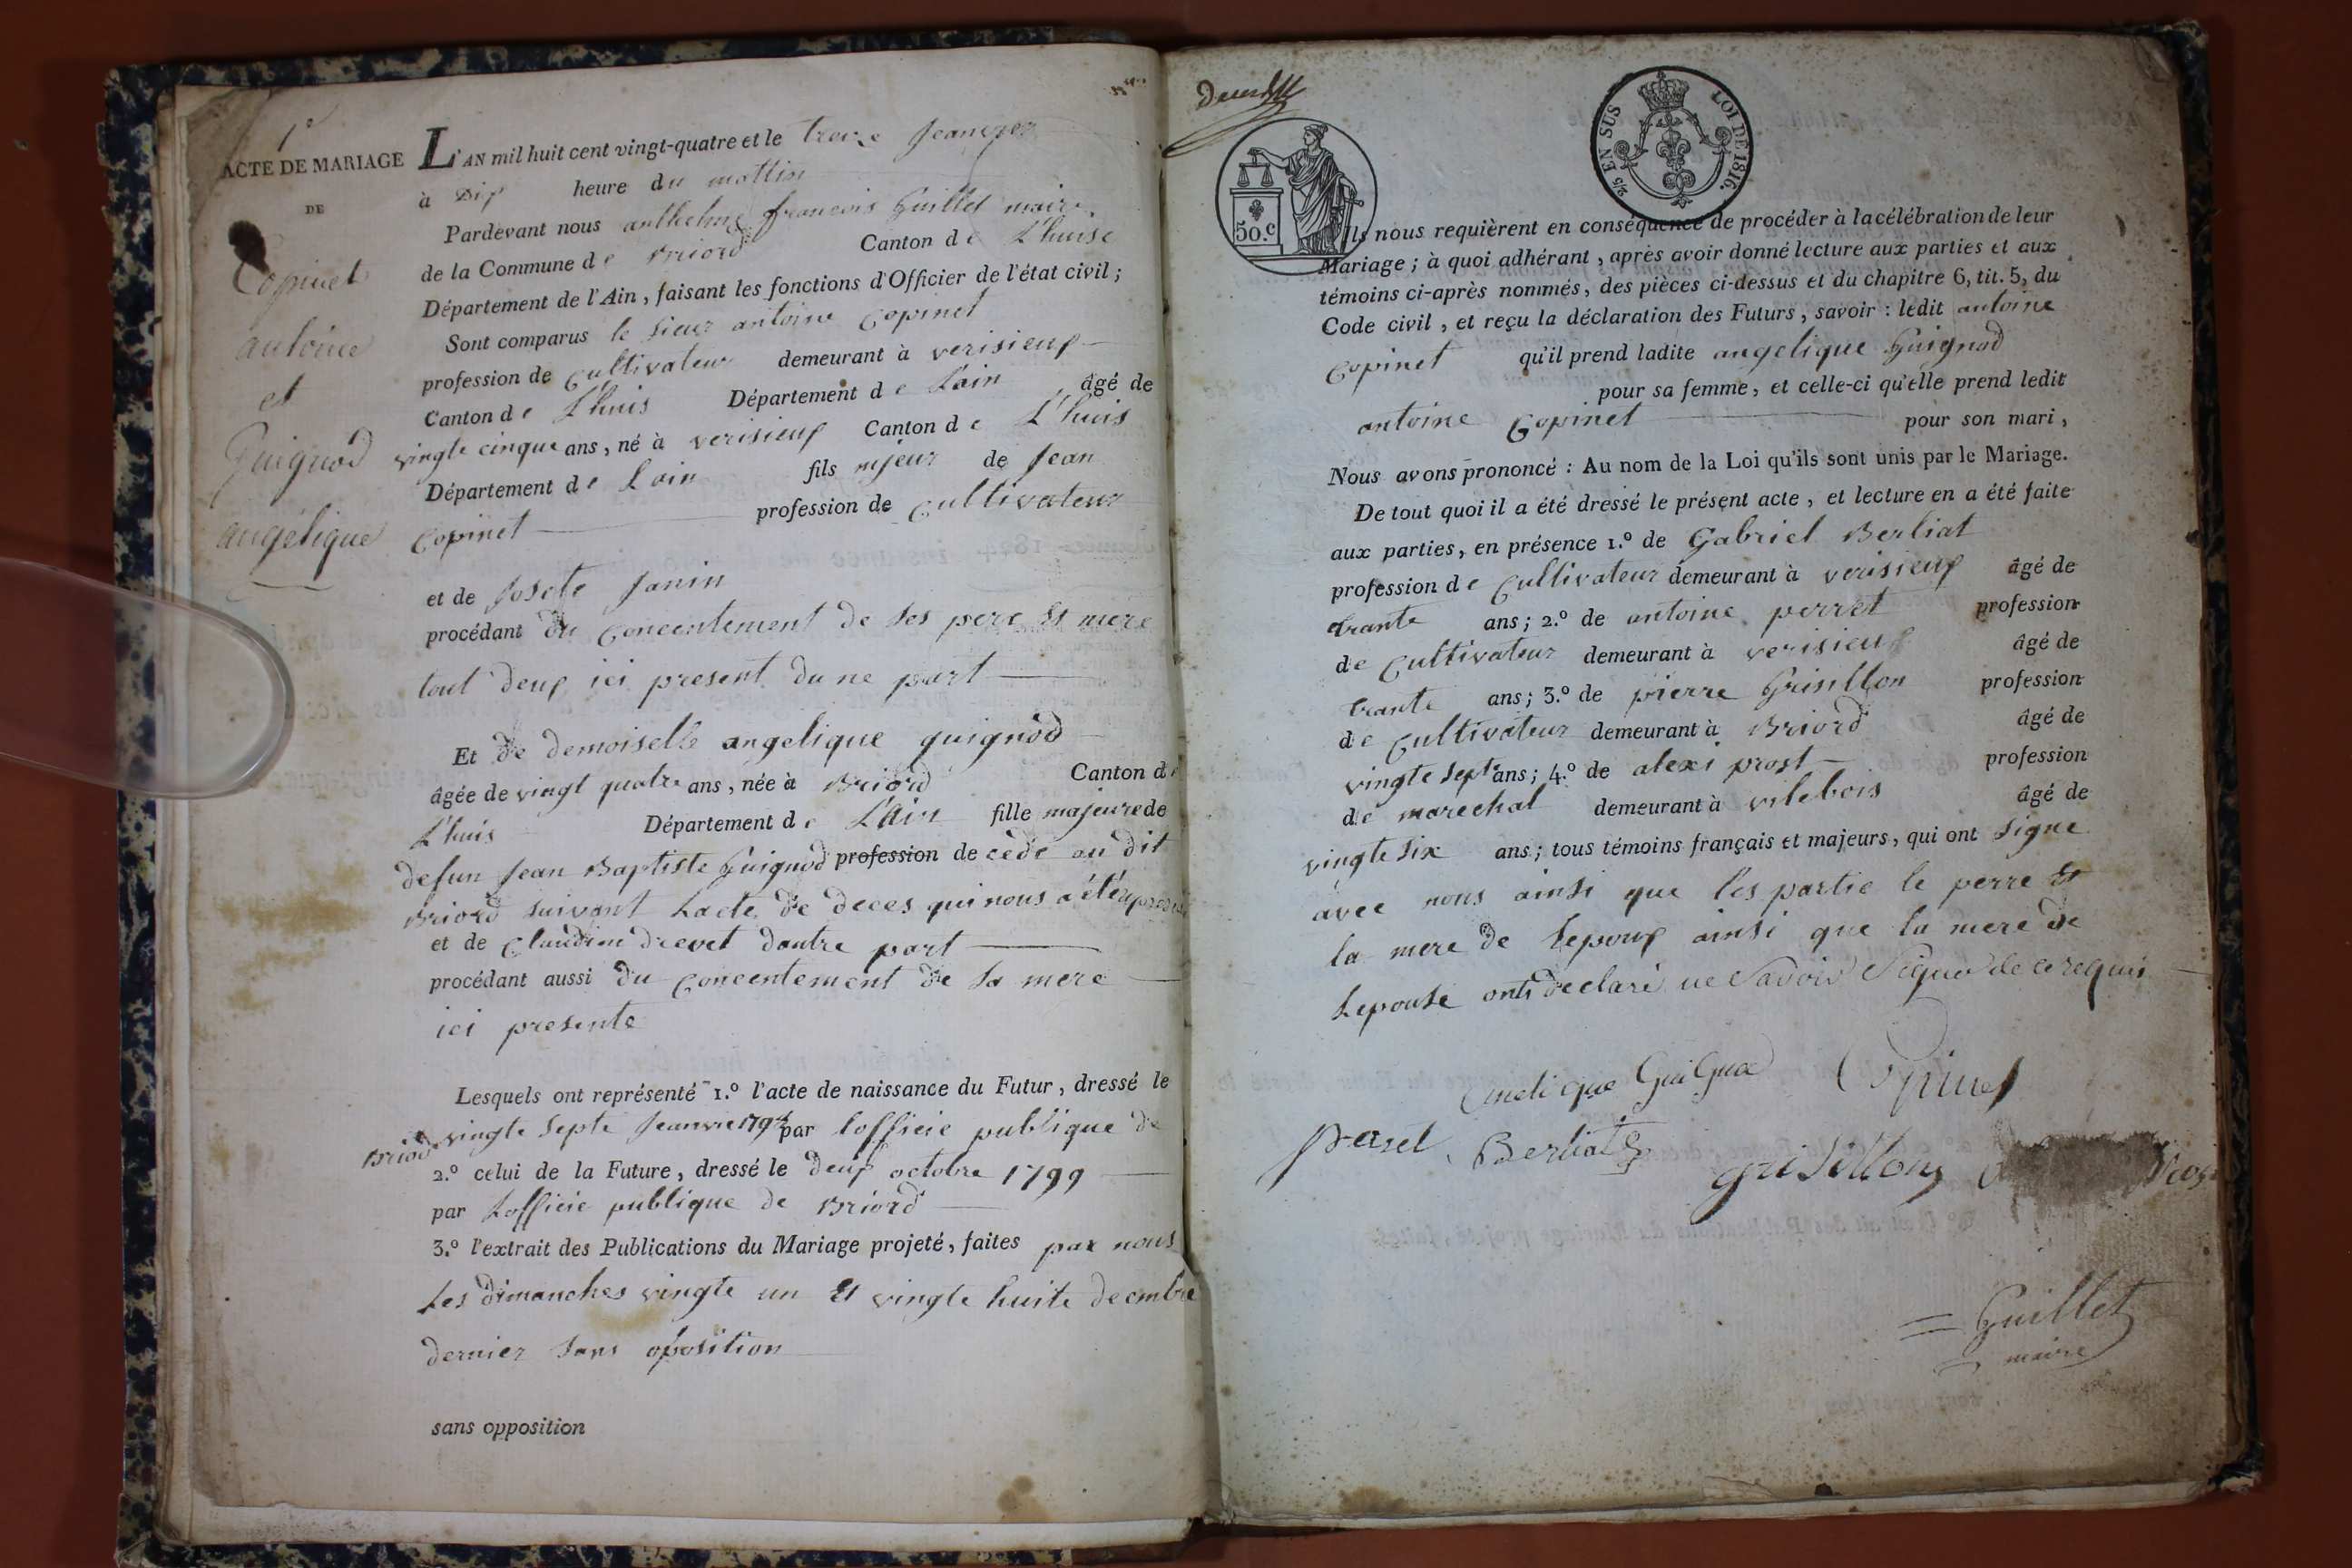 1e
ACTE DE MARIAGE
DE
Copinet
antoine
et
Guignod
angélique
L'AN mil huit cent vingt-quatre et le treize Jeanvier
à Dix heure du mattin
Pardevant nous anthelme françois Guillet maire
de la Commune de Briord Canton de L'huise
Département de l'Ain, faisant les fonctions d'Officier de l'état civil ;
Sont comparus le sieur antoine Copinet
profession de Cultivateur demeurant à verisieux
Canton de L'huis Département de L'ain âgé de
vingte cinque ans, né à verisieux Canton de L'huis
Département de L'ain fils mjeur de Jean
Copinet profession de Cultivateur
et de Josete Janin
procédant du Concentement de ses pere et mere
tout deux ici present du ne part
Et de demoiselle angelique guignod
âgée de vingt quatre ans, née à Briord Canton de
L'huis Département de L'Ain fille majeure de
defun Jean Baptiste Guignod profession de cédé au dit
Briord suivant Lacte de deces qui nous a été
et de Claudine drevet dautre part
procédant aussi du Concentement de sa mere
ici presente
Lesquels ont représenté 1.º l'acte de naissance du Futur, dressé le
vingte septe Jeanvie par lofficie publique de
Briord
2.º celui de la Future, dressé le deux octobre 1799
par Lofficie publique de Briord
3.º l'extrait des Publications du Mariage projeté, faites par nous
Les dimanches vingte un Et vingte huite decmbre
dernier sans oposition
sans opposition
50.c
2/5 EN SUS
LOI DE 1816.
Ils nous requièrent en conséquence de procéder à la célébration de leur
Mariage ; à quoi adhérant, après avoir donné lecture aux parties et aux
témoins ci-après nommés, des pièces ci-dessus et du chapitre 6, tit. 5, du
Code civil, et reçu la déclaration des Futurs, savoir : ledit antoine
Copinet qu'il prend ladite angelique Guignod
pour sa femme, et celle-ci qu'elle prend ledit
antoine Copinet pour son mari,
Nous avons prononcé : Au nom de la Loi qu'ils sont unis par le Mariage.
De tout quoi il a été dressé le présent acte, et lecture en a été faite
aux parties, en présence 1.º de Gabriel Berliat
profession de Cultivateur demeurant à verisieux âgé de
trante ans ; 2.º de antoine perret profession
de Cultivateur demeurant à verisieux âgé de
trante ans ; 3.º de pierre Grisillon profession
de Cultivateur demeurant à Briord âgé de
vingte septe ans ; 4.º de alexi prost profession
de marechal demeurant à vilebois âgé de
vingte six ans ; tous témoins français et majeurs, qui ont signe
avec nous ainsi que les partie le perre Et
la mere de Lepoux ainsi que la mere de
Lepouse onts declaré ne savoir signer de ce requis
Copinet
Berliat
grisillon
Guillet
maire